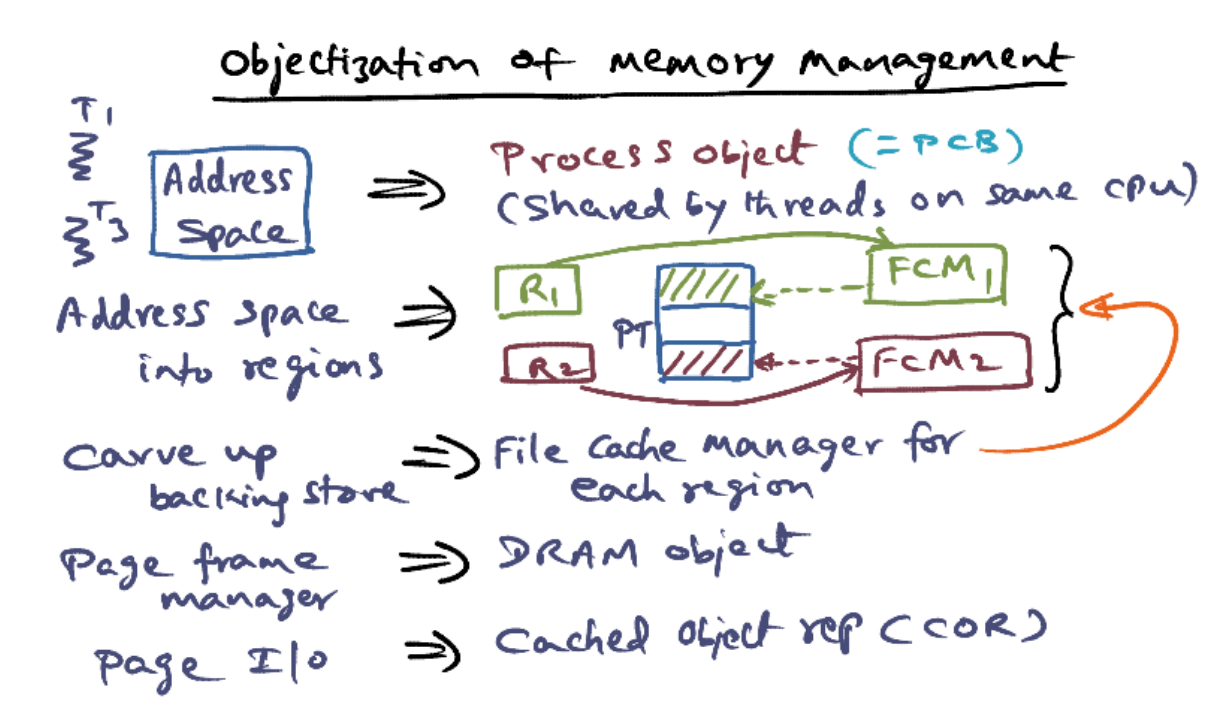 Objectization of memory management
T1
Address
Space
T3
⇒ Process object (= PCB)
(Shared by threads on same cpu)
Address space
into regions
⇒ R1
FCM1
PT
R2
FCM2
Carve up
backing store
⇒ File Cache manager for
each region
Page frame
manager
⇒ DRAM object
Page I/O ⇒ Cached object rep (COR)